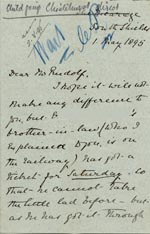 Vicarage
South Shields
1 May 1895
Dear Mr Rudolf,
I hope it will not
make any difference to
you, but
brother-in-law (who I
explained to you, is on
the Railway) has got a
ticket for Saturday - so
that he cannot take
the little lad before - but
as he has got it through